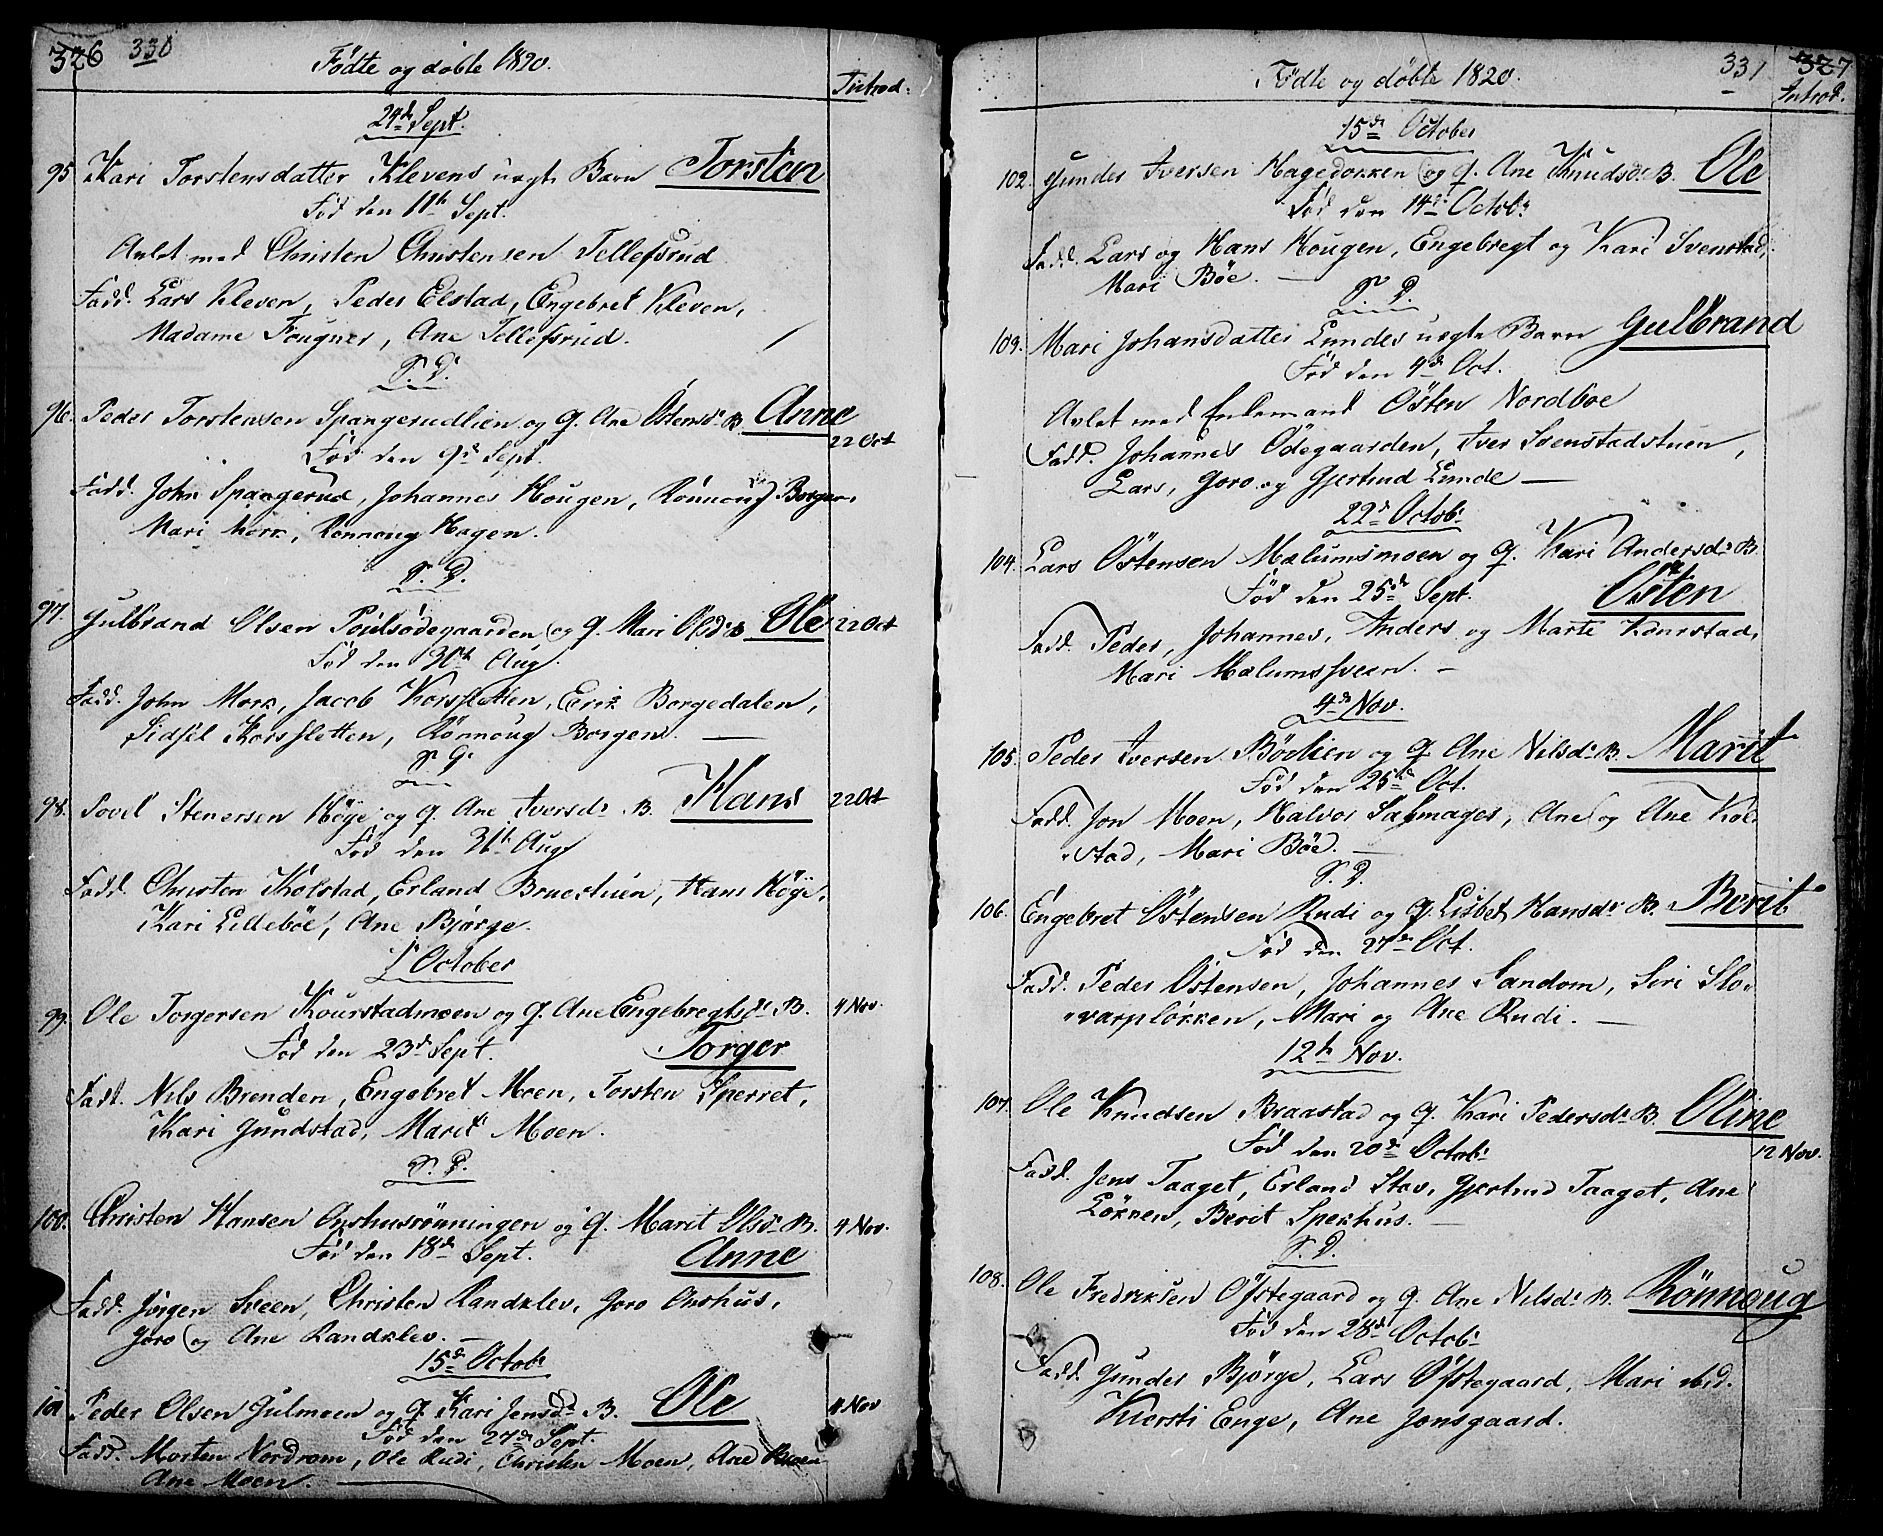 326 330
Födte og döbte 1820.
Introd.
24de Sept.
95 Kari Torstensdatter Klevens uægte Barn Torsten
Föd den 11te Sept.
Avlet med Christen Christensen Tellefsrud
Fadd. Lars Kleven, Peder Elstad, Engebret Kleven,
Madame Fougner, Ane Tellefsrud.
S. D.
96. Peder Torstensen Spangerudlien og Q. Ane Östensdr B. Anne
Föd den 9de Sept. 22 Oct
Fadd. John Spangerud, Johannes Hougen, Rönnoug Borgen,
Mari Mörk, Rönnoug Hagen.
S. D.
97. Gulbrand Olsen Poulsödegaarden og Q. Mari Olsdr B. Ole 22 Oct
Föd den 30te Aug.
Fadd. John Mork, Jacob Korssletten, Erik Borgedalen,
Sidsel Korssletten, Rönnoug Borgen.
S. D.
98. Povel Stenersen Höye og Q. Ane Iversdr B. Hans 22 Oct
Föd den 31te Aug
Fadd. Christen Kolstad, Erland Bruestuen, Hans Höye,
Kari Lilleböe, Ane Bjørge.
1te October
99. Ole Torgersen Kourstadmoen og Q. Ane Engebregtsdr B. 4 Nov.
Föd den 23de Sept. Torger
Fadd. Nils Brenden, Engebret Moen, Torsten Sperret,
Kari Gundstad, Marit Moen.
S. D.
100. Christen Hansen Onshusrönningen og Q. Marit Olsdr B. 4 Nov.
Föd den 18de Sept. Anne
Fadd. Jörgen Sveen, Christen Randklev, Goro Onshus,
Goro og Ane Randklev.
15de Octobr
101 Peder Olsen Julmoen og Q. Kari Jensdr B. Ole 4 Nov
Föd den 27de Sept.
Fadd. Morten Nordrom, Ole Rudi, Christen Moen, Ane Moen
Ane Moen.
Födte og döbte 1820.
331 327
Introd.
15de October
102. Gunder Iversen Hagedokken og Q. Ane Knudsdr B. Ole
Föd den 14de Octobr
Fadd. Lars og Hans Hougen, Engebregt og Kari Svenstad,
Mari Böe.
S. D.
103. Mari Johansdatter Lundes uægte Barn Gulbrand
Föd den 4de Oct.
Avlet med Enkemand Östen Nordboe
Fadd. Johannes Ödegaarden, Iver Svenstadstuen,
Lars, Goro og Gjertrud Lunde
22de Octobr
104. Lars Östensen Mælumsmoen og Q. Kari Andersdr B.
Föd den 25de Sept. Östen
Fadd. Peder, Johannes, Anders og Marte Kourstad,
Mari Mælumssveen.
4de Nov.
105. Peder Iversen Bövlien og Q. Ane Nilsdr B. Marit
Föd den 25de Oct.
Fadd. Jon Moen, Halvor Salmager, Ane og Ane Kol-
stad, Mari Böe.
S. D.
106. Engebret Östensen Rudi og Q. Lisbet Hansdr B. Berit
Föd den 27de Oct.
Fadd. Peder Östensen, Johannes Sandom, Siri Slo-
varpløkken, Mari og Ane Rudi.
12te Nov.
107. Ole Knudsen Braastad og Q. Kari Pedersdr B. Oline
Föd den 20de Octobr 12 Nov.
Fadd. Jens Taaget, Erland Stav, Gjertrud Taaget, Ane
Lökken, Berit Spekhus.
S. D.
108. Ole Fredriksen Ofstegaard og Q. Ane Nilsdr B. Rönnoug
Föd den 28de Octobr
Fadd. Gunder Bjørge, Lars Ofstegaard, Mari ibid.
Kiersti Enge, Ane Jonsgaard.